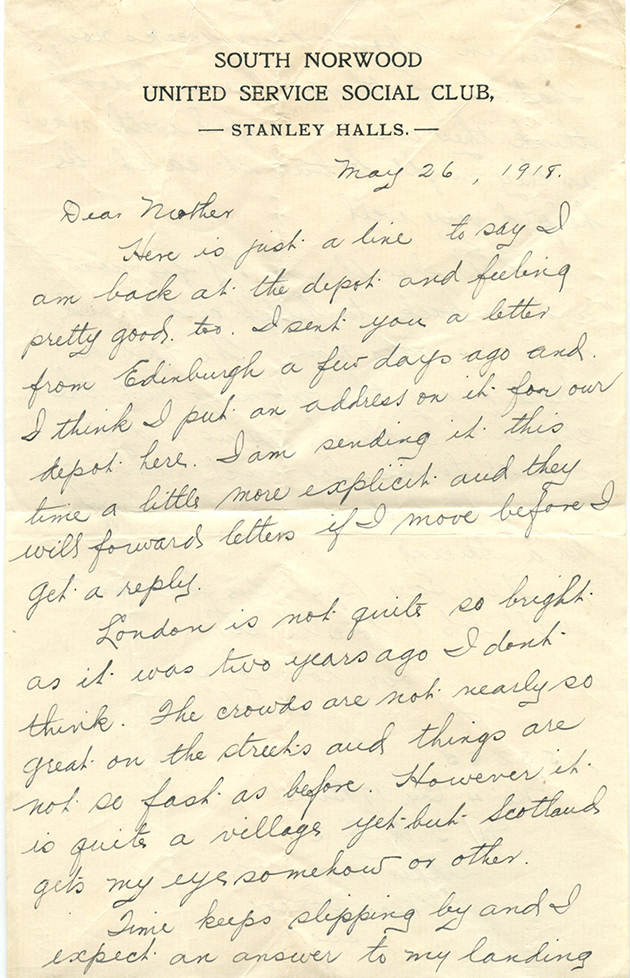 SOUTH NORWOOD
UNITED SERVICE SOCIAL CLUB,
— STANLEY HALLS. —
May 26, 1918.
Dear Mother
Here is just a line to say I
am back at the depot and feeling
pretty good too. I sent you a letter
from Edinburgh a few days ago and
I think I put an address on it for our
depot here. I am sending it this
time a little more explicit and they
will forward letters if I move before I
get a reply.
London is not quite so bright
as it was two years ago I dont
think. The crowds are not nearly so
great on the streets and things are
not so fast as before. However it
is quite a village yet but Scotland
gets my eye somehow or other.
Time keeps slipping by and I
expect an answer to my landing